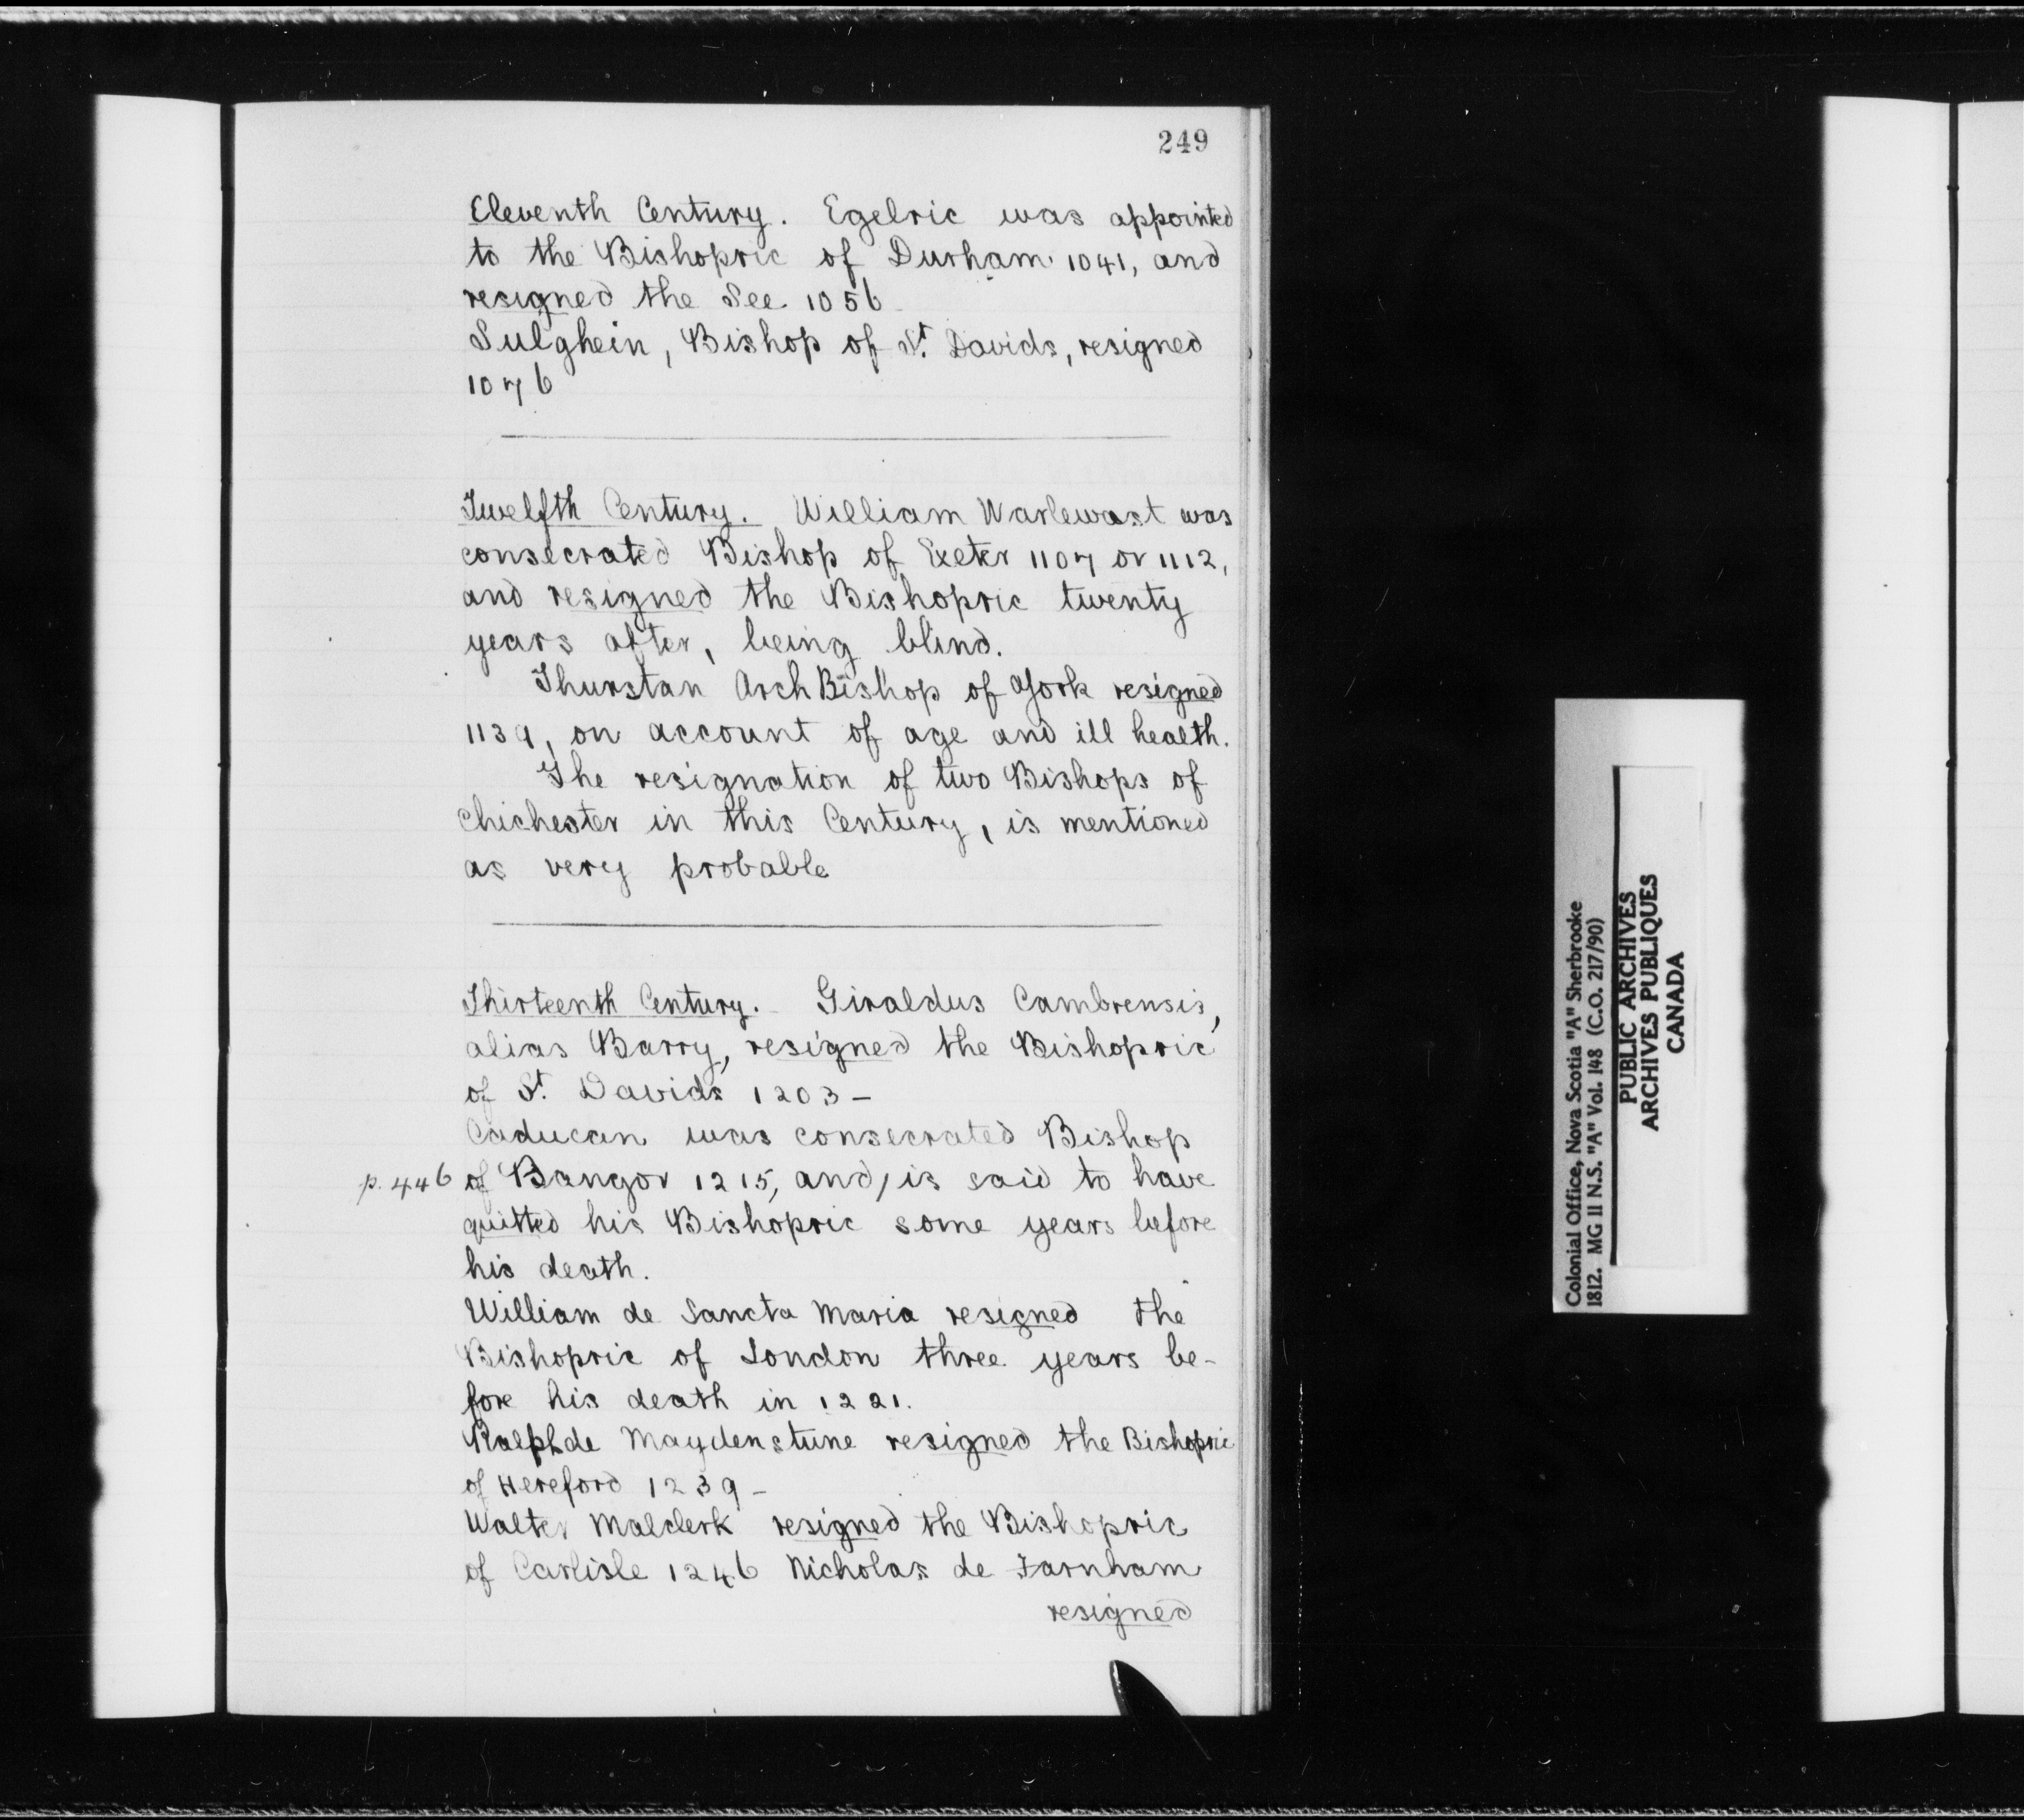 249
Eleventh Century. Egelric was appointed
to the Bishopric of Durham 1041, and
resigned the See 1056
Sulghein, Bishop of St. Davids, resigned
1076
Twelfth Century. William Warlewast was
consecrated Bishop of Exeter 1107 or 1112,
and resigned the Bishopric twenty
years after, being blind.
Thurstan ArchBishop of York resigned
1139, on account of age and ill health.
The resignation of two Bishops of
Chichester in this Century, is mentioned
as very probable
Thirteenth Century. Giraldus Cambrensis,
alias Barry, resigned the Bishopric
of St. Davids 1203 -
Caducan was consecrated Bishop
p. 446 of Bangor 1215, and, is said to have
quitted his Bishopric some years before
his death.
William de Sancta Maria resigned the
Bishopric of London three years be-
fore his death in 1221.
Ralph de Maydenstune resigned the Bishopric
of Hereford 1239 -
Walter Malclerk resigned the Bishopric
of Carlisle 1246 Nicholas de Farnham
resigned
Colonial Office, Nova Scotia "A" Sherbrooke
1812. MG 11 N.S. "A" Vol. 148 (C.O. 217/90)
PUBLIC ARCHIVES
ARCHIVES PUBLIQUES
CANADA